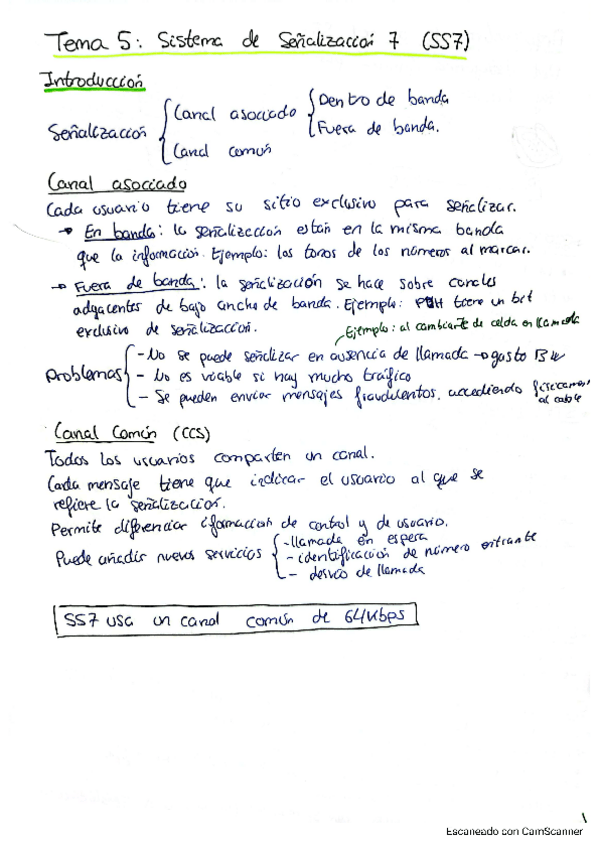 Tema 5: Sistema de Señalización 7 (SS7)
Introducción
Señalización
Canal asociado
Dentro de banda
Fuera de banda.
Canal común
Canal asociado
Cada usuario tiene su sitio exclusivo para señalizar.
→ En banda: la señalización están en la misma banda
que la información. Ejemplo: los tonos de los números al marcar.
→ Fuera de banda: la señalización se hace sobre canales
adyacentes de bajo ancho de banda. Ejemplo: PDH tiene un bit
exclusivo de señalización.
Ejemplo: al cambiarte de celda en llamada
Problemas
- No se puede señalizar en ausencia de llamada → gasto BW
- No es viable si hay mucho tráfico
- Se pueden enviar mensajes fraudulentos, accediendo físicamente
al cable
Canal Común (CCS)
Todos los usuarios comparten un canal.
Cada mensaje tiene que indicar el usuario al que se
refiere la señalización.
Permite diferenciar información de control y de usuario.
Puede añadir nuevos servicios
- llamada en espera
- identificación de número entrante
- desvío de llamada
SS7 usa un canal común de 64kbps
1
Escaneado con CamScanner